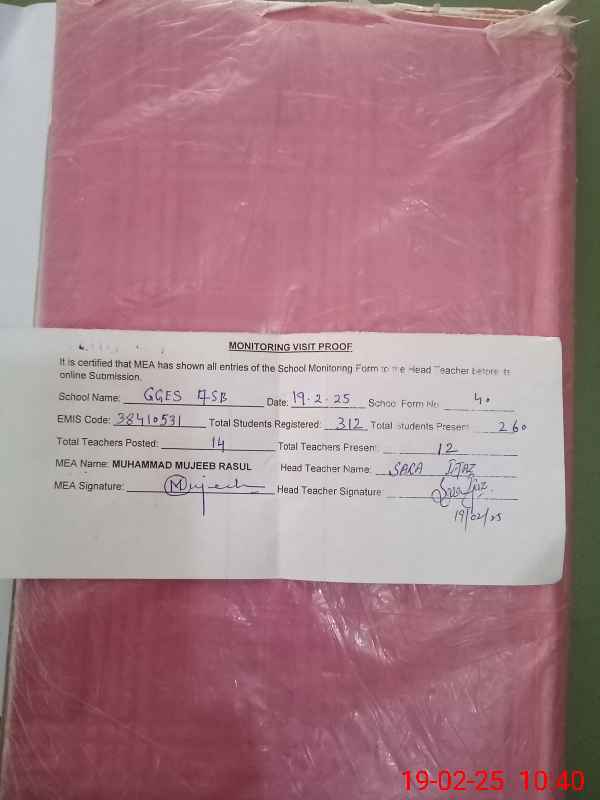 MONITORING VISIT PROOF
It is certified that MEA has shown all entries of the School Monitoring Form to the Head Teacher before its
online Submission.
School Name: GGES 47SB Date: 19-2-25 School Form No 40
EMIS Code: 38410531 Total Students Registered: 312 Total Students Present 260
Total Teachers Posted: 14 Total Teachers Present 12
MEA Name: MUHAMMAD MUJEEB RASUL Head Teacher Name: SARA IJAZ
MEA Signature: Mujeeb Head Teacher Signature
19/02/25
19-02-25 10:40